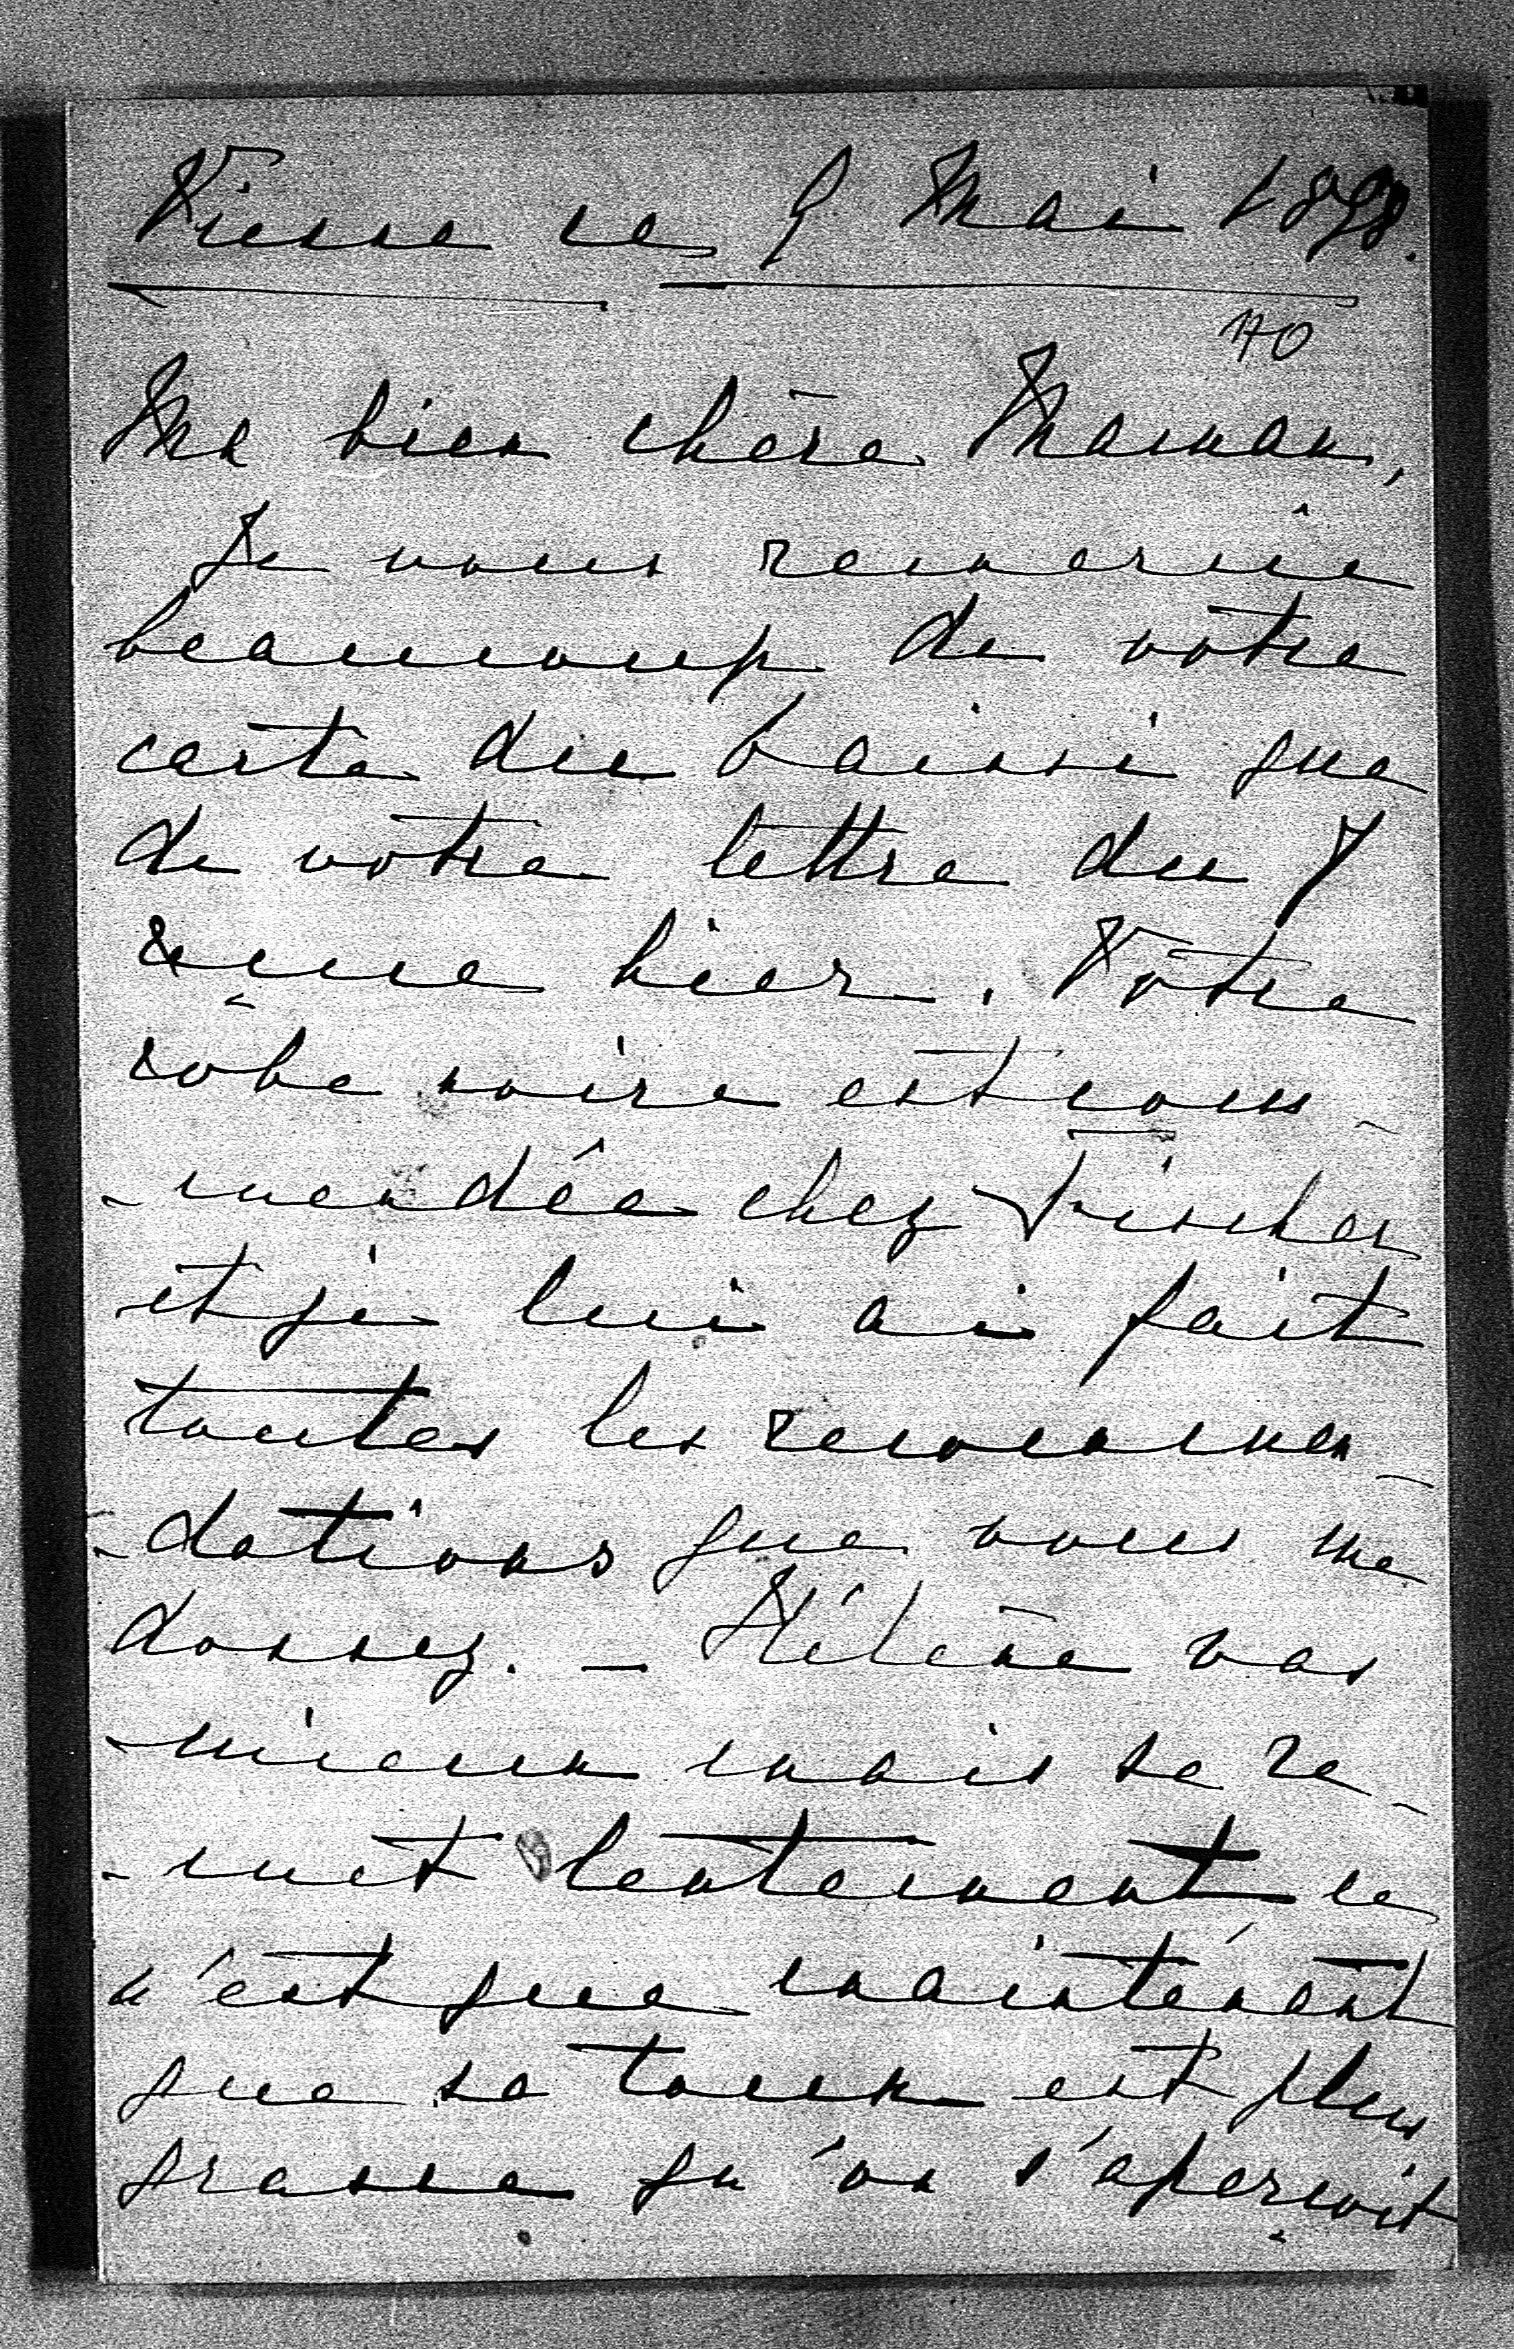 Vienne ce 9 Mai 1898.
170
Ma bien chère Maman,
Je vous remercie
beaucoup de votre
carte du 6 ainsi que
de votre lettre du 7
reçue hier. Votre
robe noire est com-
-mendée chez Fischer
et je lui ai fait
toutes les recommen-
-dations que vous me
donnez. - Hélène vas
mieux mais se re-
-met lentement ce
n'est que maintenent
que sa toux est plus
grasse qu'on s'aperçoit